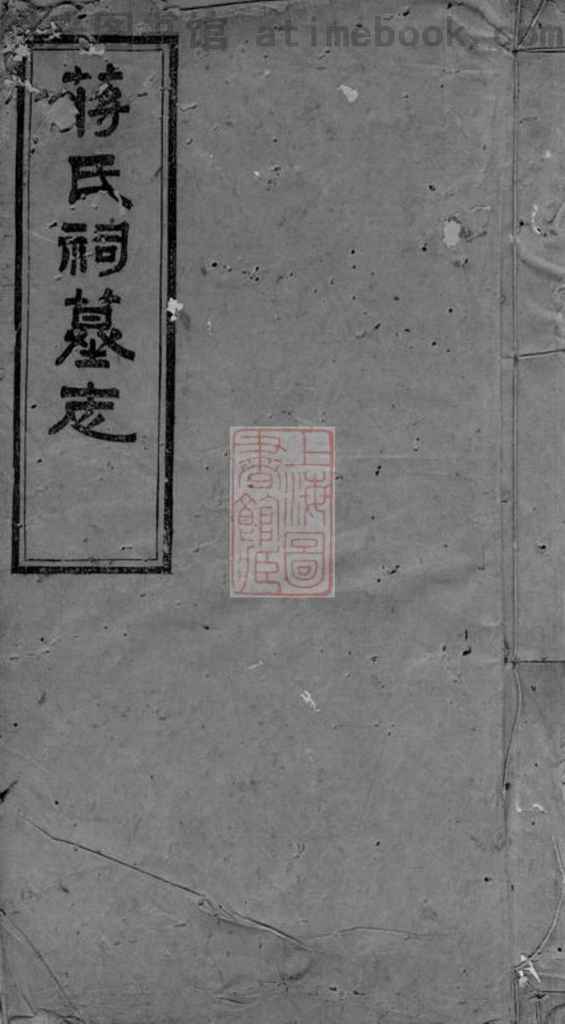 图书馆 atimebook.com
蒋氏祠墓志
上海圖
書館藏